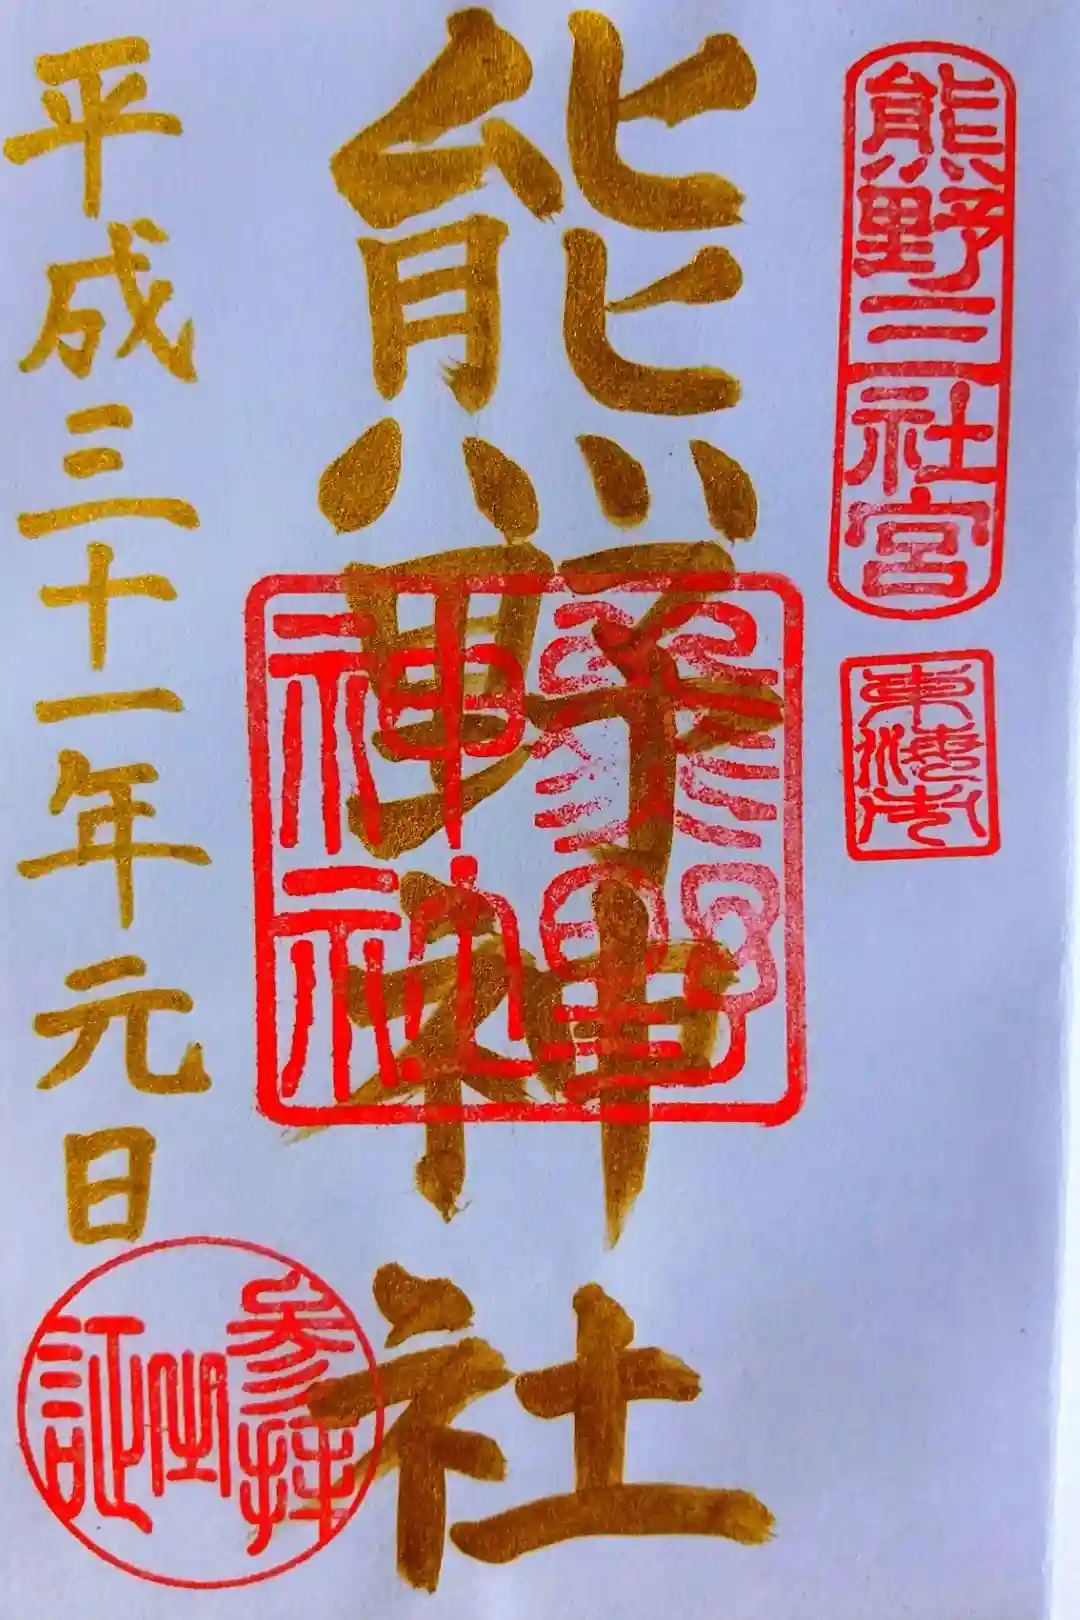 熊野三社宮
熊野神社
熊野
神社
平成三十一年元日
参拝
之
証